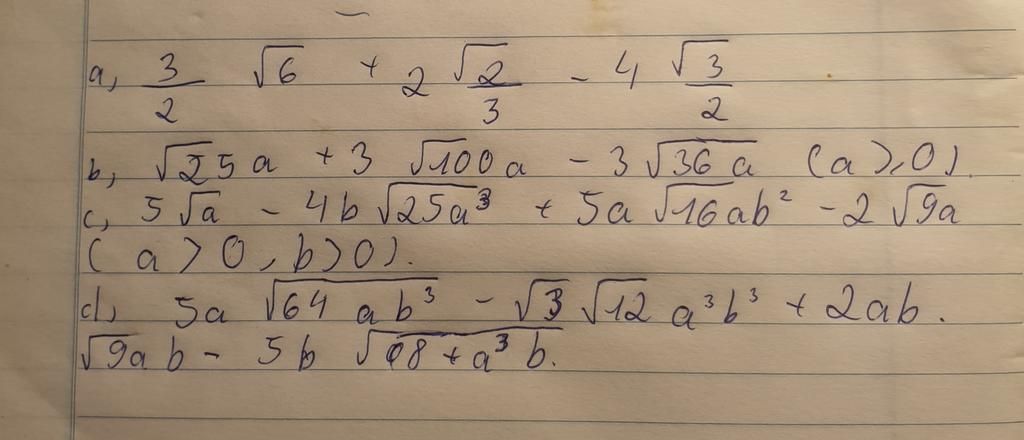 a, 3/2 √6 + 2 √2/3 - 4 √3/2
b, √25a + 3 √100a - 3 √36a (a ≥ 0).
c, 5√a - 4b √25a³ + 5a √16ab² - 2 √9a
(a > 0, b > 0).
d, 5a √64ab³ - √3 √12 a³b³ + 2ab.
√9ab - 5b √08 + a³b.